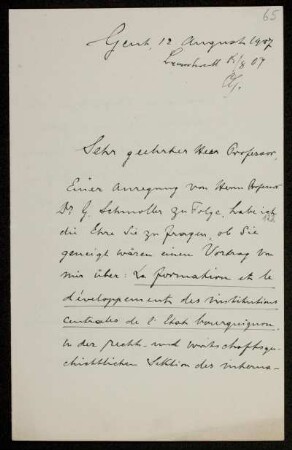 65
Gent, 12 August 1907
Beantwortet 15/8 07
Sehr geehrter Herr Professor,
Einer Anregung von Herrn Professor
Dr G. Schmoller zu Folge, habe ich
die Ehre Sie zu fragen, ob Sie
geneigt wären einen Vortrag von
mir über: La formation et le
développement des institutions
centrales de l'Etat bourguignon,
in der recht- und wirtschaftsge-
schichtlichen Sektion des interna-